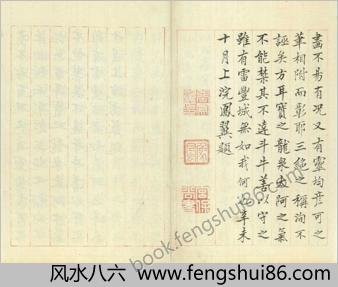 畵不易有况又有靈均彦可之
筆相附而彰耶三絶之稱洵不
誣矣方耳寶之龍泉太阿之氣
不能禁其不達斗牛善以守之
雖有雷豐城無如我何也辛未
十月上浣鳳翼題
book.fengshui86.com
风水八六 www.fengshui86.com